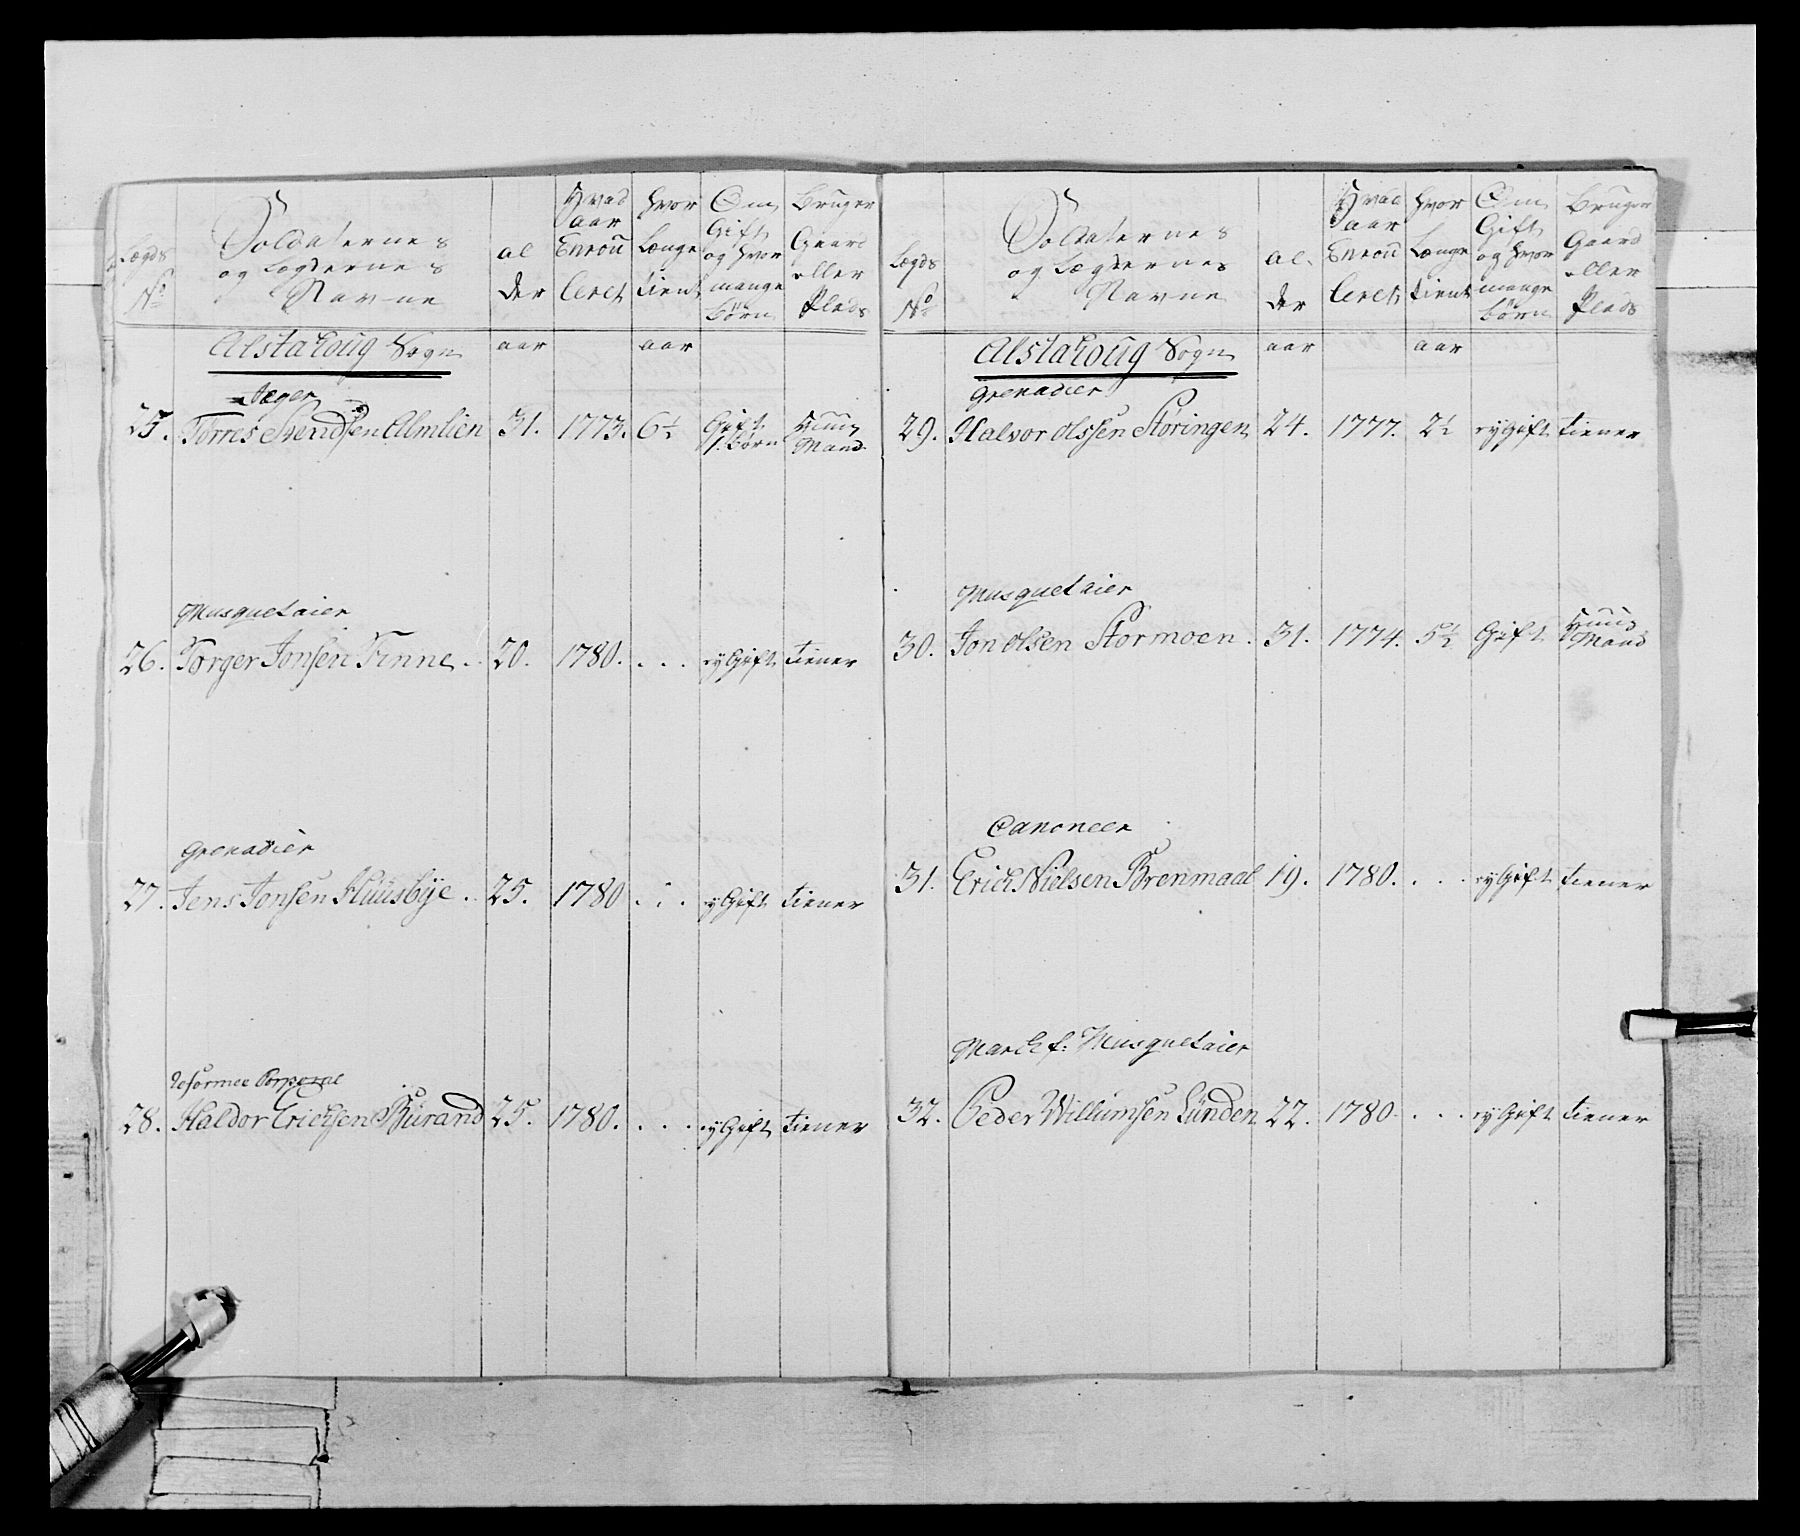 Lægds
No
Soldaternes
og Lægdernes
Navne
al
der
Hvad
aar
Enrou
leret
Hvor
Længe
tient
Om
Gift
og Hvor
mange
Børn
Bruger
Gaard
eller
Plads
Alstahoug Sogn
aar
aar
Jæger
25. Torres Svendsen Almlien 31. 1773. 6½ Gift 1. Børn Huus Mand
Musquetaier
26. Torger Jonsen Finne 20. 1780. . . . ey Gift tiener
Grenadier
27. Jens Jonsen Huusbye . 25. 1780 . . . ey Gift tiener
Reformee Corporal
28. Haldor Ericksen Biurand 25. 1780. . . . ey Gift tiener
Lægds
No
Soldaternes
og Lægdernes
Navne
al
der
Hvad
aar
Enrou
leret
Hvor
Længe
tient
Om
Gift
og Hvor
mange
Børn
Bruger
Gaard
eller
Plads
Alstahoug Sogn
aar
aar
Grenadier
29. Halvor Olssen Støringen 24. 1777. 2½ ey Gift tiener
Musquetaier
30. Jon Olsen Stormoen . 31. 1774. 5½ Gift Huus Mand
Canoneer
31. Erich Nielsen Brenmaal 19. 1780. . . . ey Gift tiener
Marck f: Musquetaier
32. Peder Willumsen Lunden 22. 1780 . . . ey Gift tiener